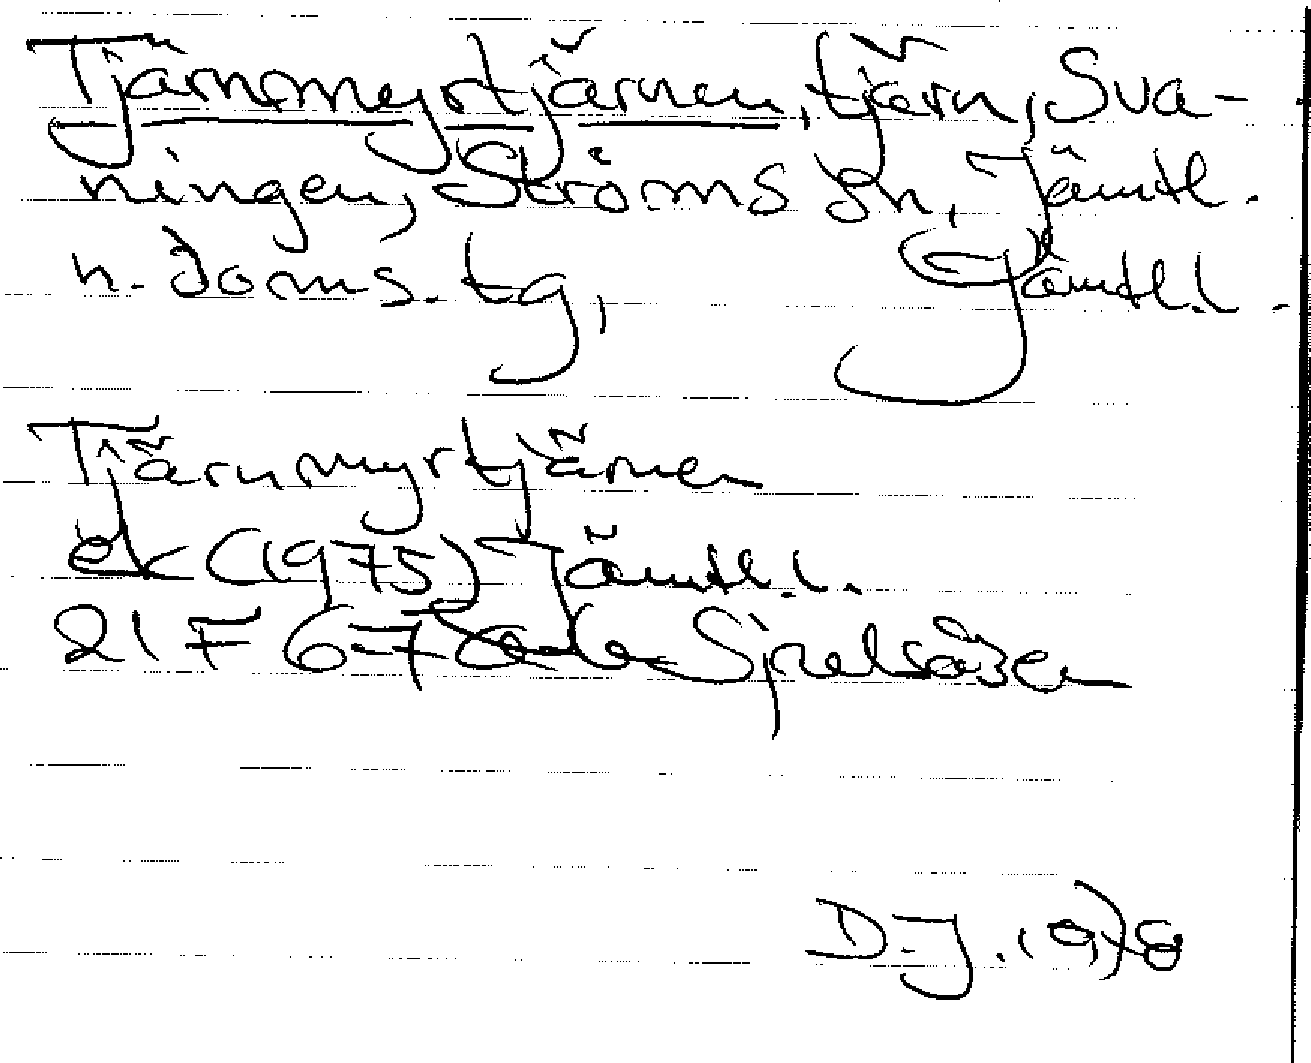 Tjärnmyrtjärnen, tjärn, Sva-
ningen, Ströms sn, Jämtl.
n. doms. tg, Jämtl.l.
Tjärnmyrtjärnen
ek (1975) Jämtl.l.
21F 6-7 a-b Spelsåsen
D.J. 1978